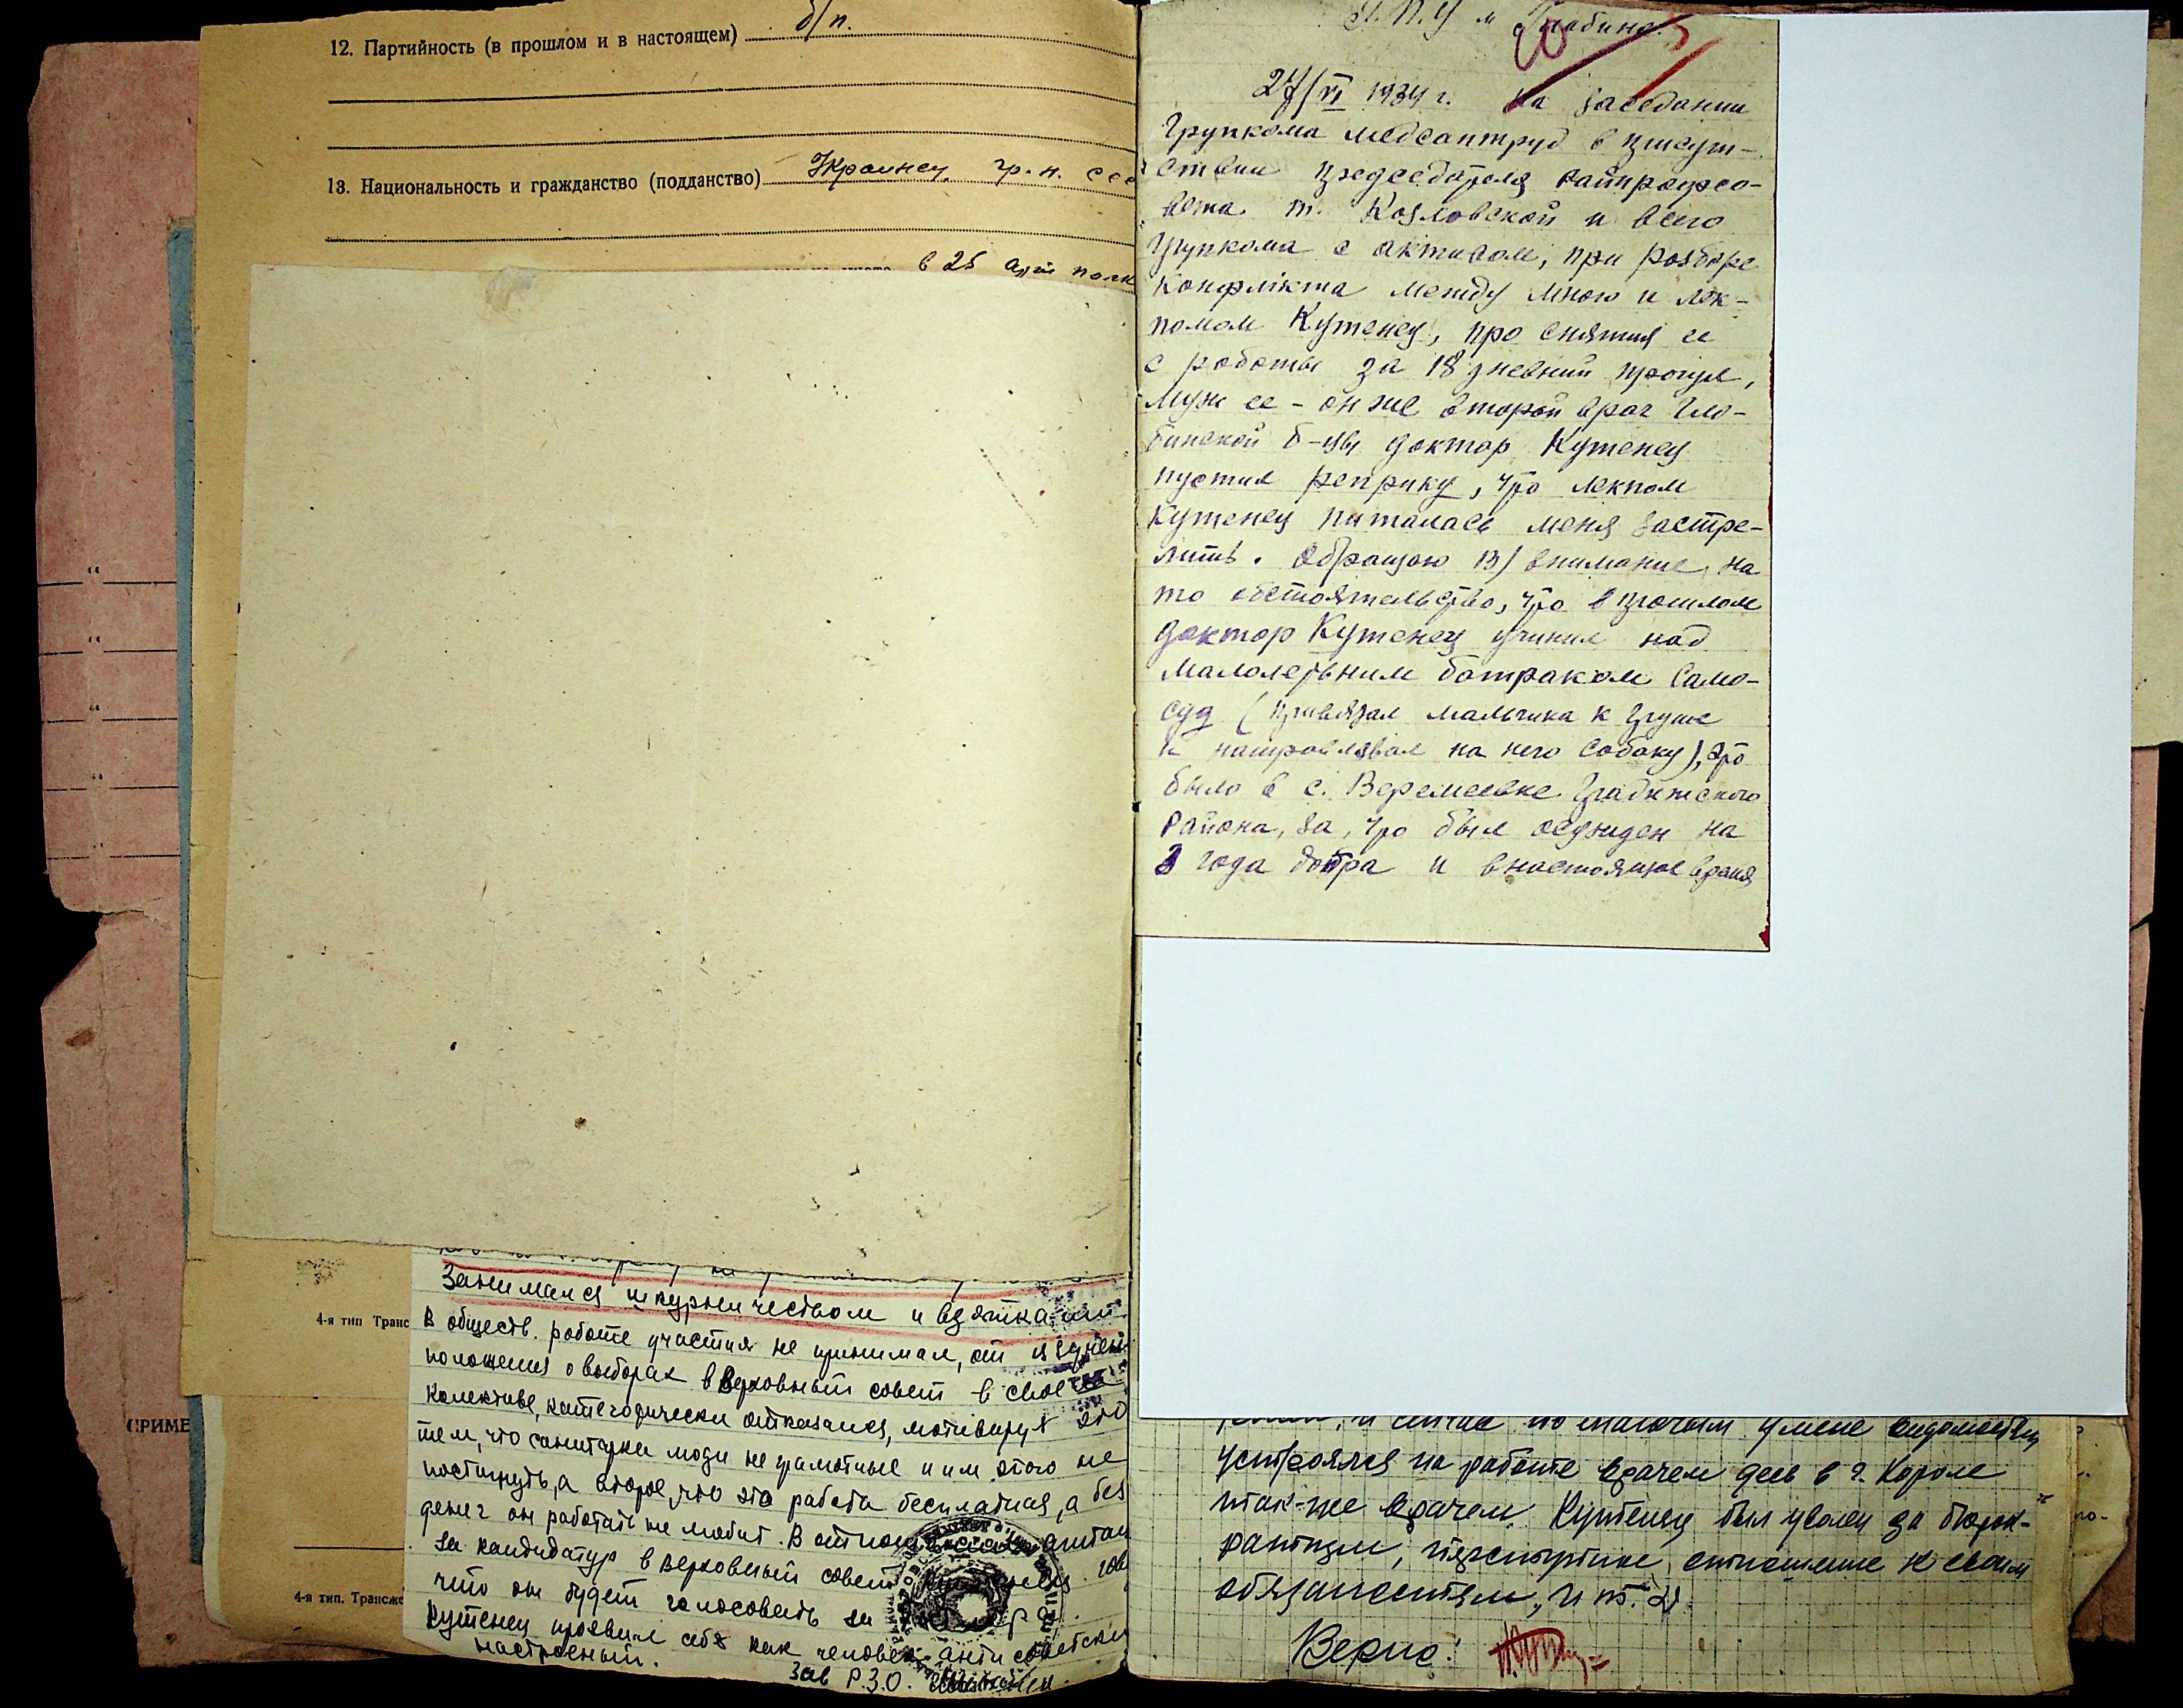 12. Партийность (в прошлом и в настоящем) б/п.
13. Национальность и гражданство (подданство) Украинец, гр-н. ссс
в 25 арт полк
Занимался шкурничеством и взятками
В обществ. работе участия не принимал, от изучен
положения о выборах в Верховный совет в свое
колективе, категорически отказался, мотивируя это
тем, что санитарки люди не грамотные и им этого не
постигнуть, а второе, что эта работа бесплатная, а без
денег он работать не любит. В агитац
за кандидатур в верховный совет
что он будет голосовать за
Кутенец проявил себя как человек анти советски
настроенный.
Зав Р.З.О.
4-я тип Транс
4-я тип. Трансже
ПРИМЕ
Г.П.У м Глобино.
27/VI 1934 г. На заседании
Групкома медсантруд в присут-
ствии председателя райпрофсо-
вета т. Козловской и всего
групкома с активом, при розборе
конфлікта между мною и лек-
помом Кутенец, про снятия ее
с работы за 18 дневний прогул,
муж ее - он же второй врач Гло-
бинской б-цы доктор Кутенец
пустил реприку, что лекпом
Кутенец питалась меня застре-
лить. Обращаю В/ внимание на
то обстоятельство, что в прошлом
доктор Кутенец учинил над
малолетьним батраком само-
суд (привязал мальчика к груше
и натравлявал на него собаку), это
было в с. Веремеевке Градижского
района, за, что был осужден на
3 года допра и в настоящое время
и сейчас по имагочым у мене видомостям
устроялся на работе врачем десь в г. Короле
так-же врачем. Кутенец був уволен за бюрок-
ратизм, отношение к своим
обязаностям, и т.д.
Верно: